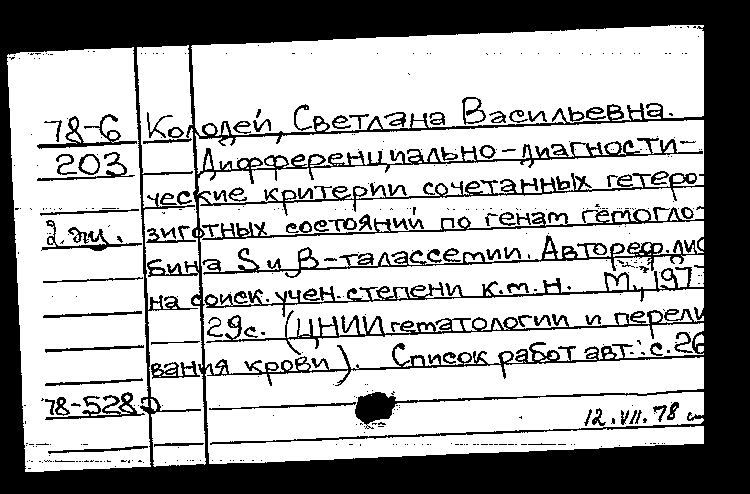 78-6 Колодей, Светлана Васильевна.
203 Дифференциально-диагности-
ческие критерии сочетанных гетеро-
2 эк. зиготных состояний по генам гемогло-
бина S и β-талассемии. Автореф. дис
на соиск. учен. степени к.м.н. М., 197
29с. (ЦНИИ гематологии и перели
вания крови). Список работ авт.: с. 26
78-528
12.VII.78